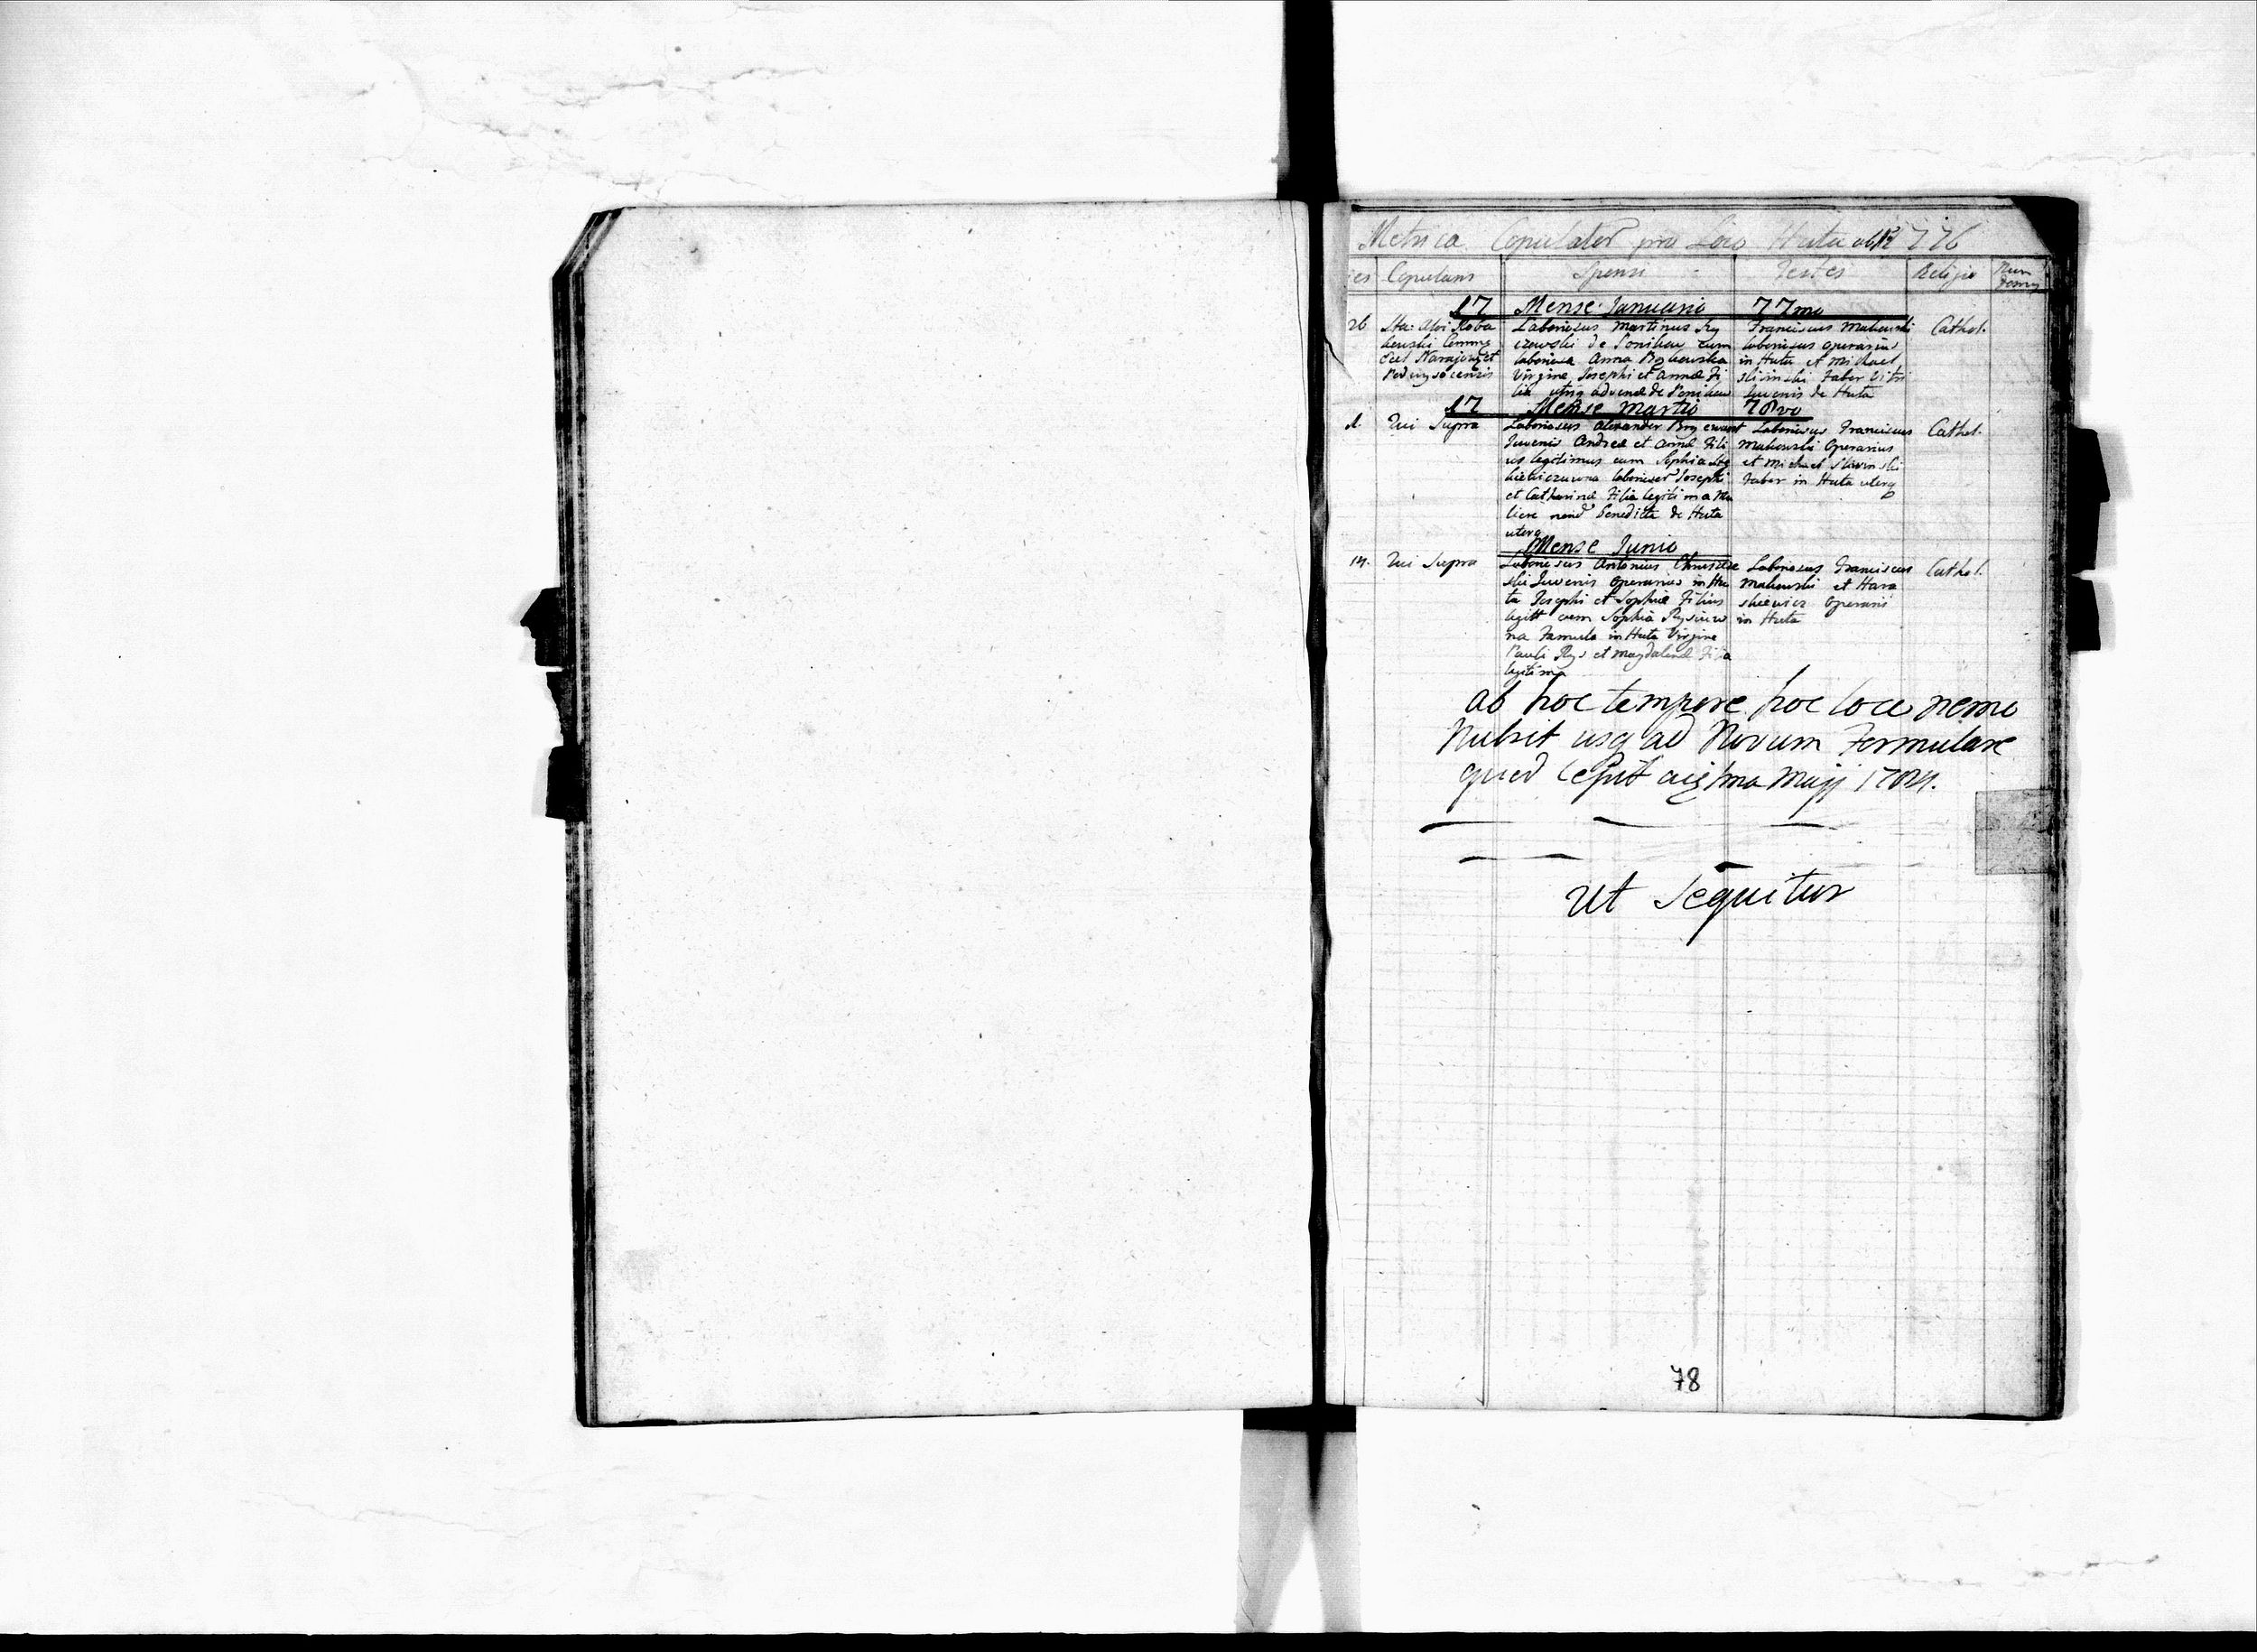 Metrica Copulator pro Loco Huta ab 1776
es Copulans Sponsi Testes Religio Num domus
17 Mense Januario 77mo
26 Laboriosus Martinus
de Ponikow cum
laboriosa Anna
Virgine Josephi et Annæ Fi
lia utriq advenæ de Ponikow
Franciscus Makowski
laboriosus operarius
in Huta et Michael
Slivinski Faber Vitri
Juvenis de Huta
Cathol.
17 Mense Martio 78vo
1. Qui Supra
Laboriosus Alexander
Juvenis Andreæ et Annæ Fili
us legitimus cum Sophia
laborioser Josephi
et Catharinæ Filia legitima Mu
liere Benedicta de Huta
uterq
Laboriosus Franciscus
Makowski Operarius
et Michael Slivinski
Faber in Huta uterq
Cathol.
Mense Junio
14. Qui Supra
Laboriosus Antonius
ski Juvenis Operarius in Hu
ta Josephi et Sophiæ Filius
legitt cum Sophia Rysiuw
na Famula in Huta Virgine
Pauli Rys et Magdalenæ Filia
legitima
Laboriosus Franciscus
Makowski et Hara
skiewicz Operarii
in Huta
Cathol.
ab hoc tempore hoc loco nemo
Nubsit usq ad Novum Formulare
quod cepit 1ma Maji 1784.
ut sequitur
78